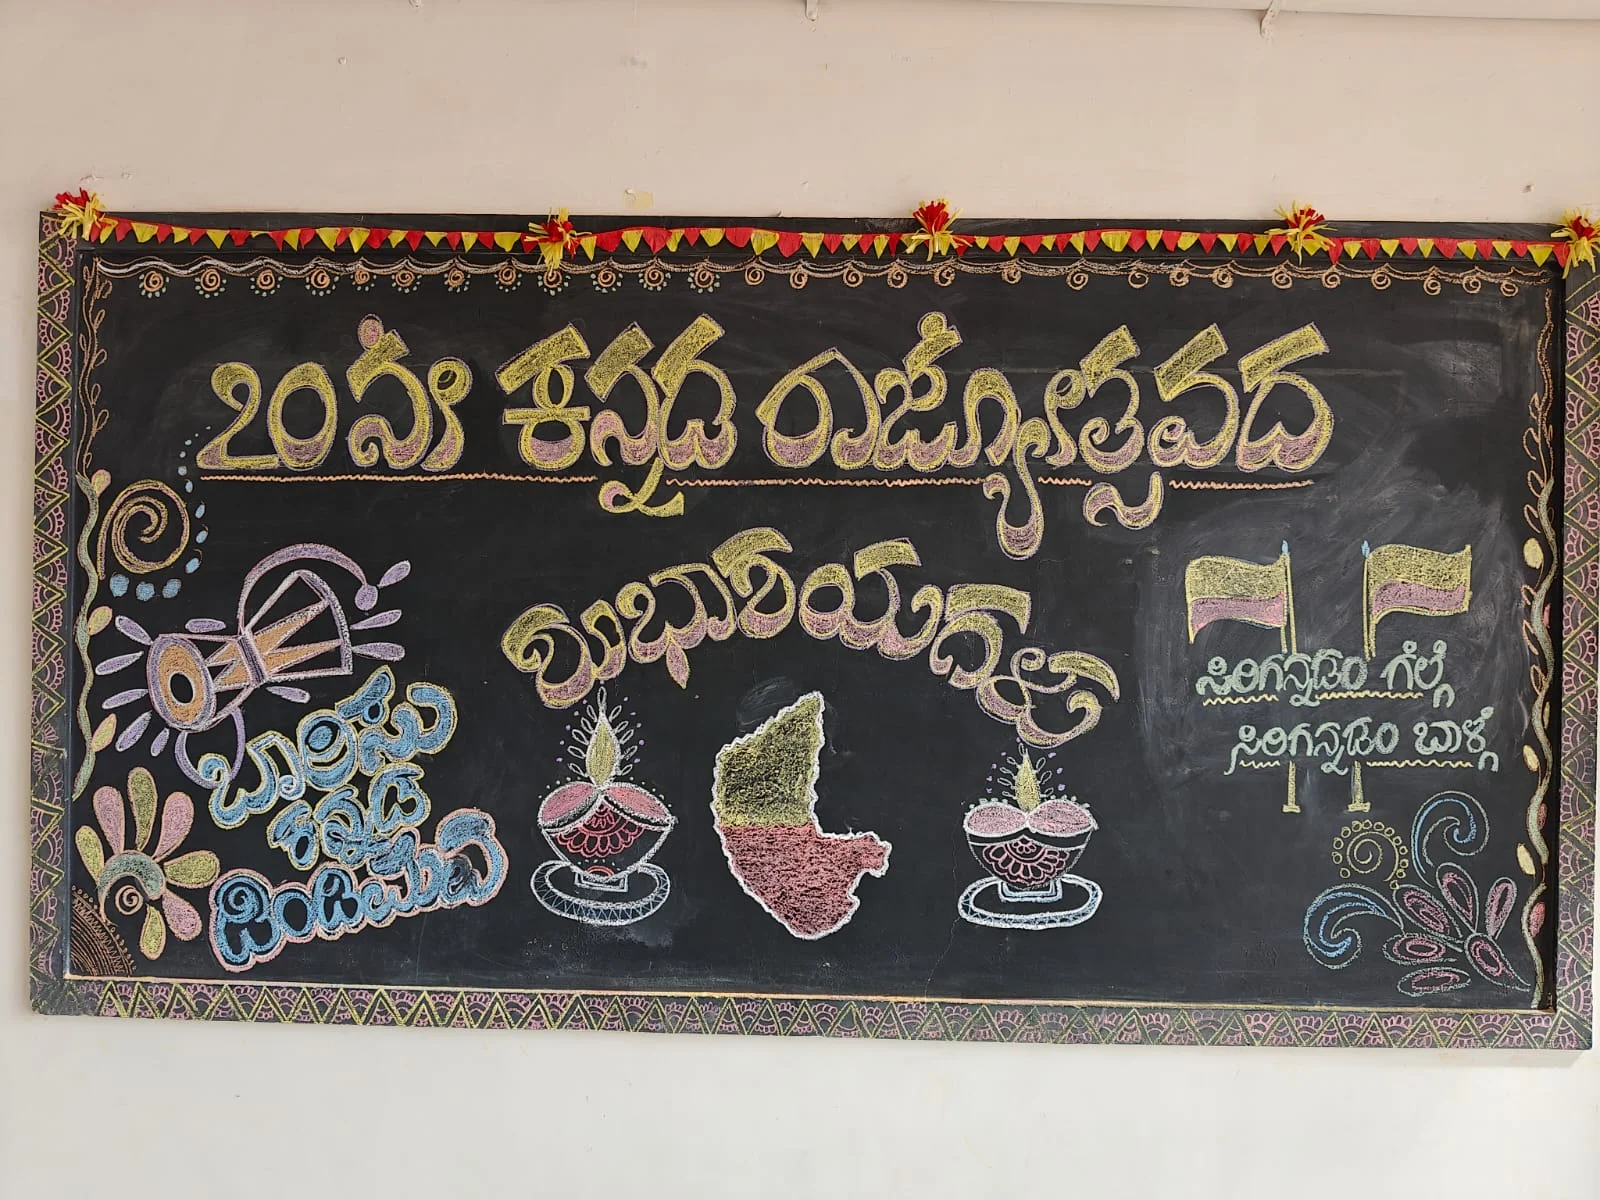 ೭೦ನೇ ಕನ್ನಡ ರಾಜ್ಯೋತ್ಸವದ
ಶುಭಾಶಯಗಳು
ಬಾರಿಸು
ಕನ್ನಡ
ಡಿಂಡಿಮವ
ಸಿರಿಗನ್ನಡಂ ಗೆಲ್ಗೆ
ಸಿರಿಗನ್ನಡಂ ಬಾಳ್ಗೆ